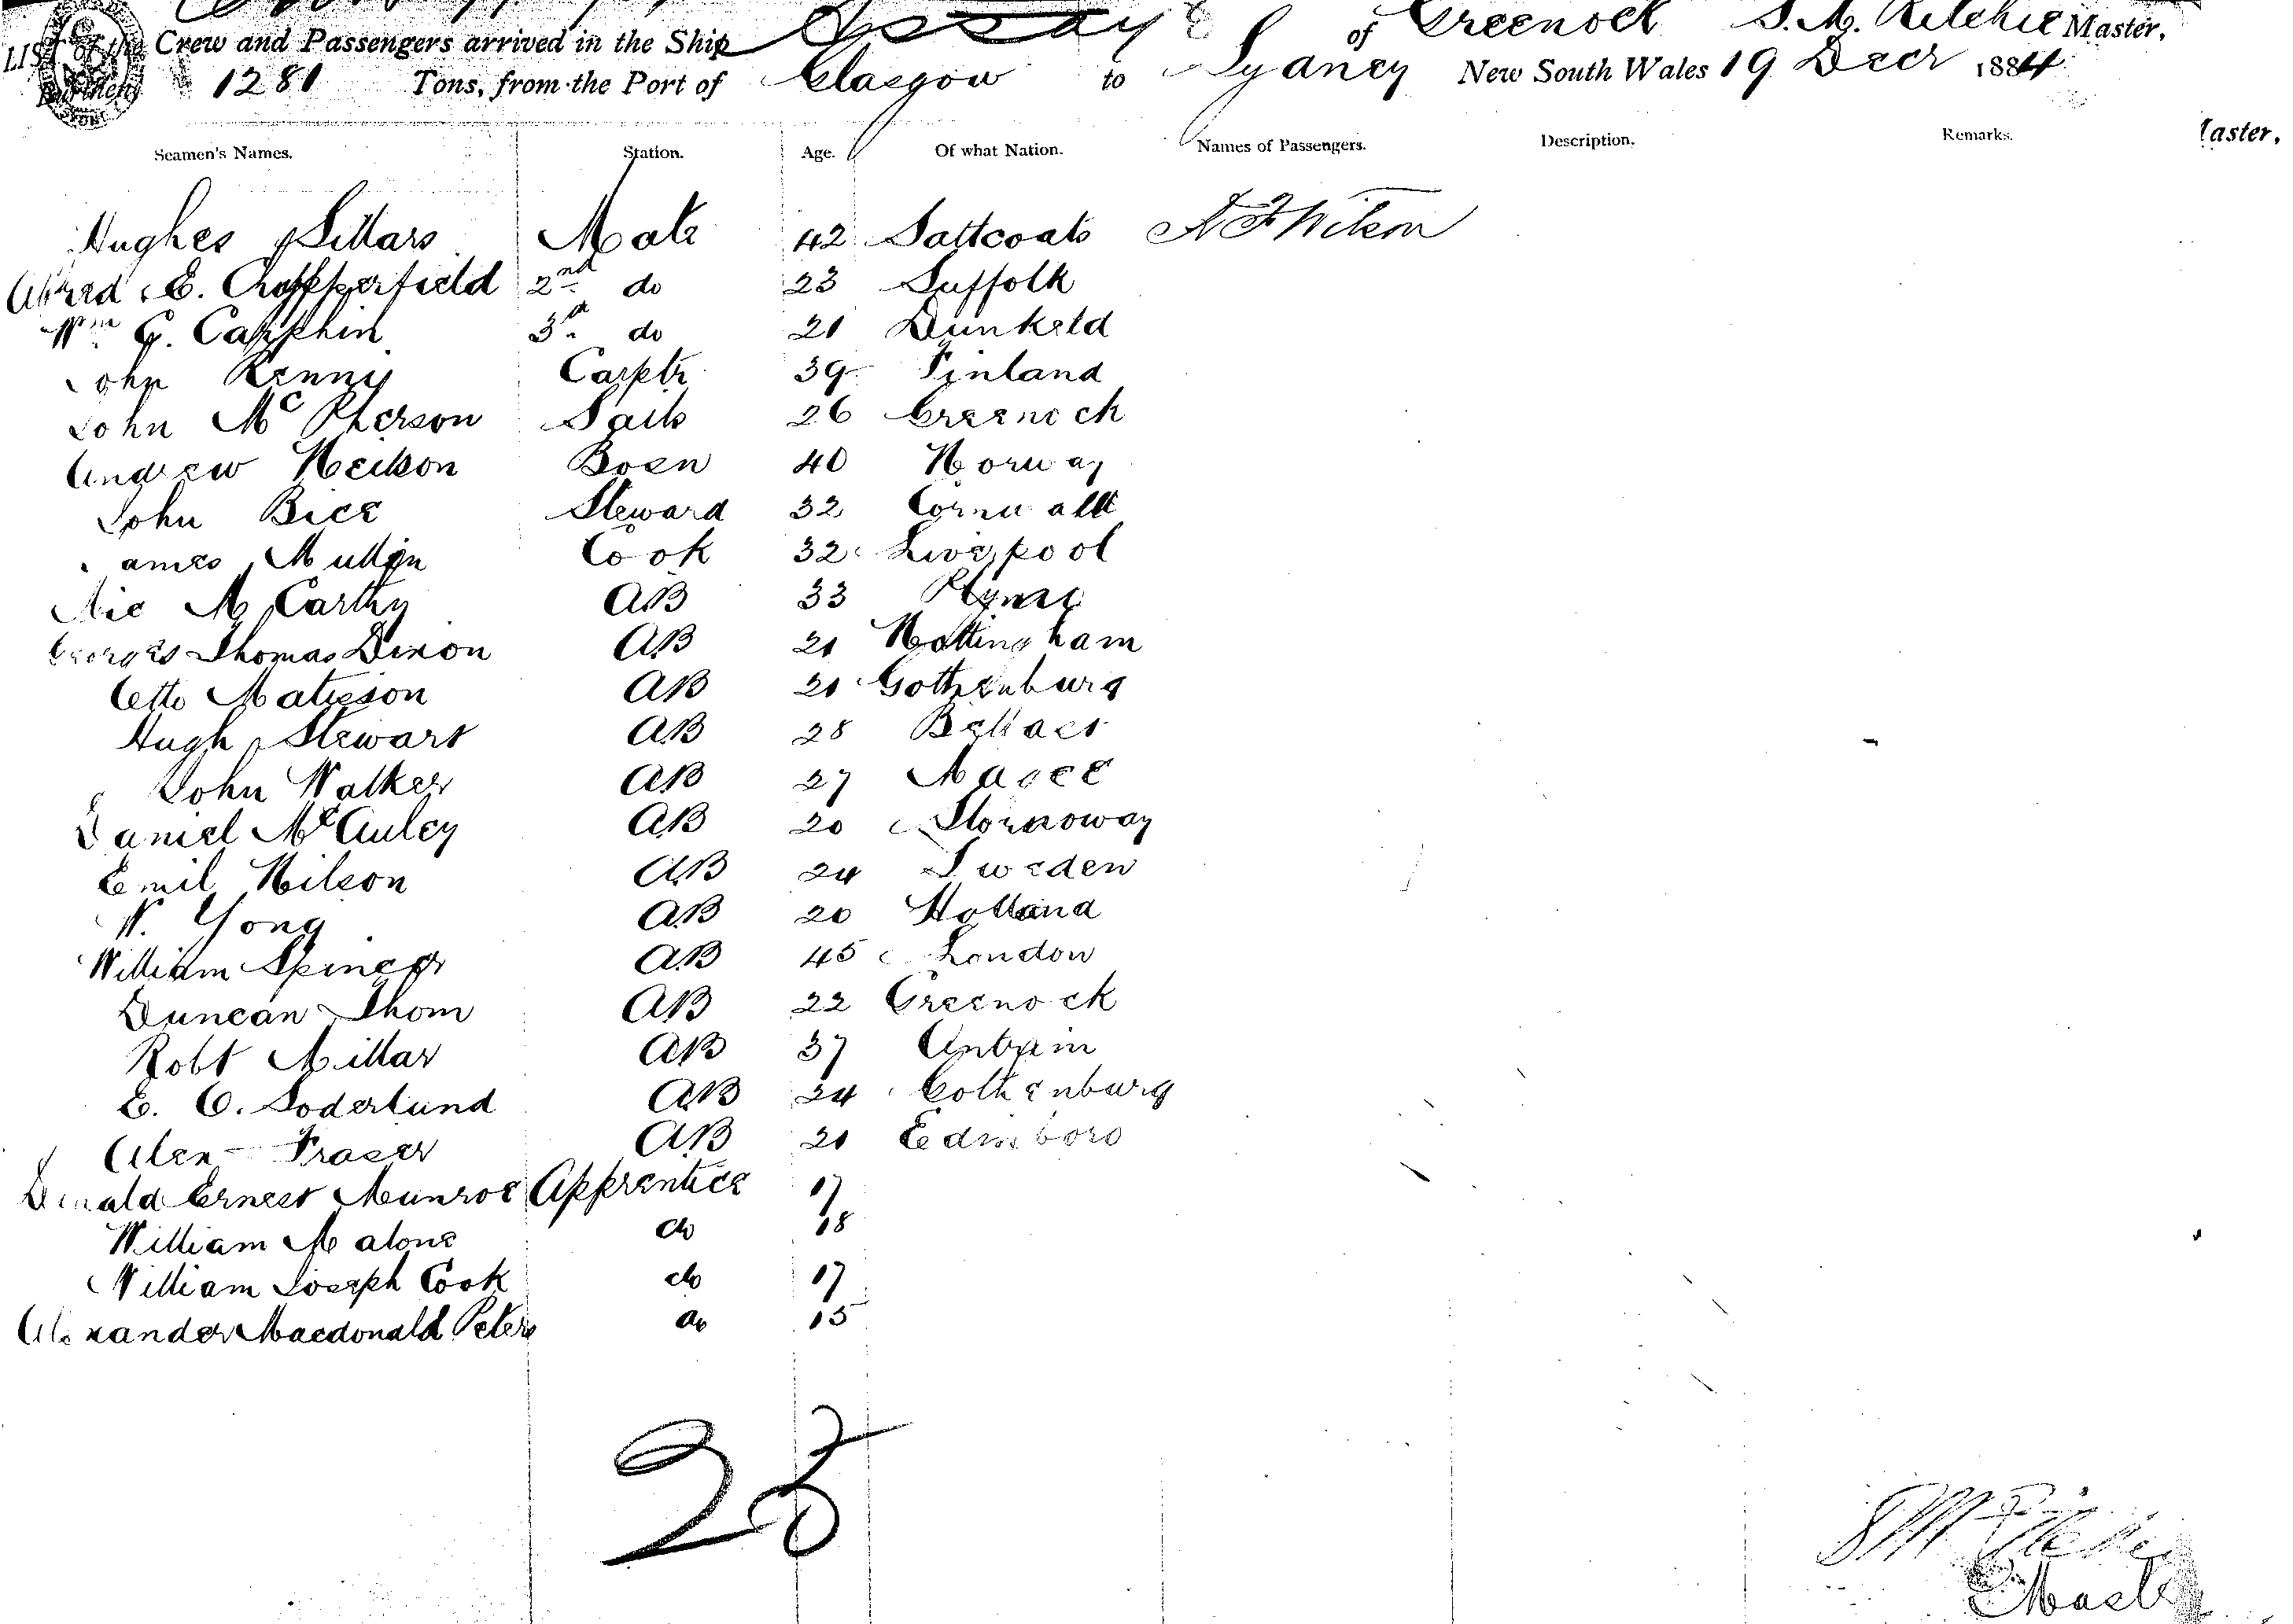 Assaye of Greenock S. M. Ritchie Master,
LIST of the Crew and Passengers arrived in the Ship
Burthen 1281 Tons, from the Port of Glasgow to Sydney New South Wales 19 Decr 1884
Seamen's Names. Station. Age. Of what Nation. Names of Passengers. Description. Remarks. aster,
Hughes Sillars Mate 42 Saltcoats A F Wilson
Alfred E. Chopperfield 2nd do 23 Suffolk
Wm G. Carphin 3rd do 21 Dunkeld
John Renny Carptr 39 Finland
John McPherson Sails 26 Greenock
Andrew Neilson Bosn 40 Norway
John Bice Steward 32 Cornwall
James Mullin Cook 32 Liverpool
Mic McCarthy AB 33
Georges Thomas Dixon AB 21 Nottingham
Otto Matieson AB 21 Gothenburg
Hugh Stewart AB 28 Belfast
John Walker AB 27
Daniel McAuley AB 20 Stornoway
Emil Nilson AB 24 Sweden
W. Yong AB 20 Holland
William Spincer AB 45 London
Duncan Thom AB 22 Greenock
Robt Millar AB 37 Antrim
E. O. Soderlund AB 24 Gothenburg
Alex Fraser AB 21 Edinboro
Donald Ernest Munroe Apprentice 17
William Malone do 18
William Joseph Cook do 17
Alexander Macdonald Peters do 15
S M Ritchie
Master